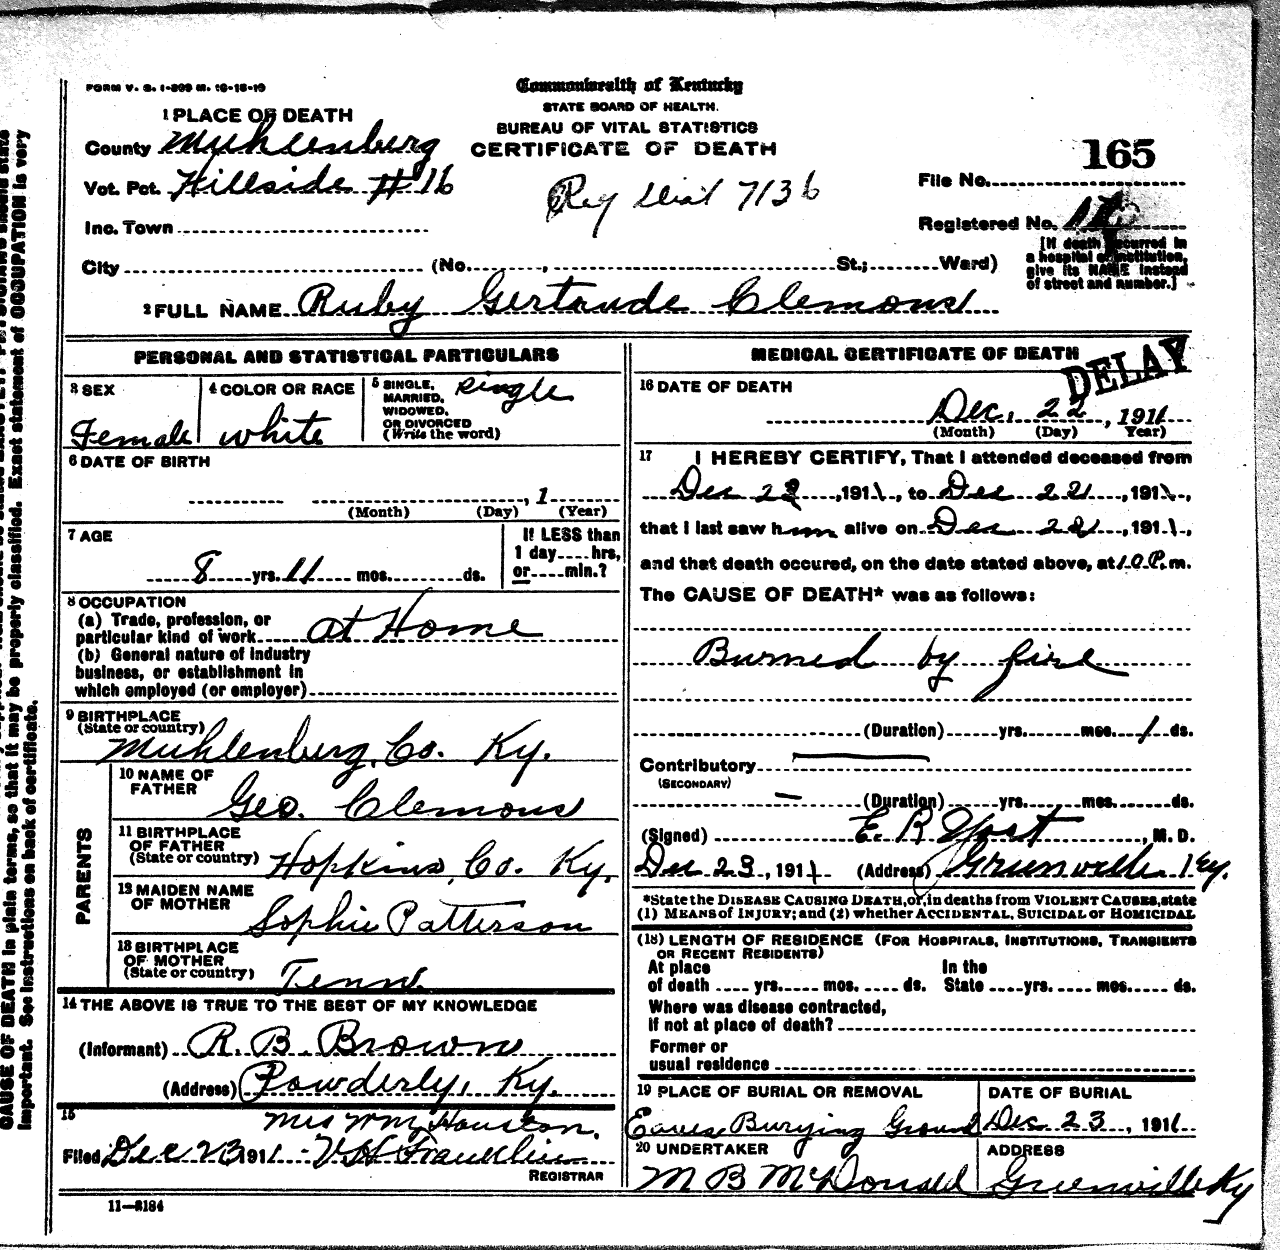 FORM V. S. 1-200 M. 10-18-10
Commonwealth of Kentucky
STATE BOARD OF HEALTH.
BUREAU OF VITAL STATISTICS
CERTIFICATE OF DEATH
1 PLACE OF DEATH
County Muhlenburg
Vot. Pct. Hillside #16
Reg Dist 7136
165
File No.
Registered No.
Inc. Town
[If death occurred in
a hospital or institution,
give its NAME instead
of street and number.]
City (No. , St.; Ward)
2 FULL NAME Ruby Gertrude Clemons
PERSONAL AND STATISTICAL PARTICULARS
3 SEX
Female
4 COLOR OR RACE
white
5 SINGLE,
MARRIED,
WIDOWED,
OR DIVORCED
(Write the word)
single
6 DATE OF BIRTH
, 1
(Month) (Day) (Year)
7 AGE
8 yrs. 11 mos. ds.
If LESS than
1 day hrs,
or min.?
8 OCCUPATION
(a) Trade, profession, or
particular kind of work at Home
(b) General nature of industry
business, or establishment in
which employed (or employer)
9 BIRTHPLACE
(State or country)
Muhlenburg, Co. Ky.
PARENTS
10 NAME OF
FATHER
Geo. Clemons
11 BIRTHPLACE
OF FATHER
(State or country) Hopkins, Co. Ky.
12 MAIDEN NAME
OF MOTHER
Sophie Patterson
13 BIRTHPLACE
OF MOTHER
(State or country) Tenn.
14 THE ABOVE IS TRUE TO THE BEST OF MY KNOWLEDGE
(Informant) R. B. Brown
(Address) Powderly, Ky.
15
Mrs Wm Houston,
Filed Dec 23 1911 - V H Franklin
REGISTRAR
11-2184
MEDICAL CERTIFICATE OF DEATH
DELAY
16 DATE OF DEATH
Dec. 22, 1911
(Month) (Day) Year)
17 I HEREBY CERTIFY, That I attended deceased from
Dec 22, 1911, to Dec 22, 1911,
that I last saw him alive on Dec 22, 1911,
and that death occured, on the date stated above, at 10 P.m.
The CAUSE OF DEATH* was as follows:
Burned by fire
(Duration) yrs. mos. 1 ds.
Contributory
(SECONDARY)
(Duration) yrs. mos. ds.
(Signed) E. R Yost, M. D.
Dec 23, 1911 (Address) Greenville Ky.
*State the DISEASE CAUSING DEATH, or, in deaths from VIOLENT CAUSES, state
(1) MEANS of INJURY; and (2) whether ACCIDENTAL, SUICIDAL or HOMICIDAL
(18) LENGTH OF RESIDENCE (FOR HOSPITALS, INSTITUTIONS, TRANSIENTS
OR RECENT RESIDENTS)
At place In the
of death yrs. mos. ds. State yrs. mos. ds.
Where was disease contracted,
If not at place of death?
Former or
usual residence
19 PLACE OF BURIAL OR REMOVAL
Eaves Burying Ground
DATE OF BURIAL
Dec 23, 1911
20 UNDERTAKER
M B McDonald
ADDRESS
Greenville Ky
CAUSE OF DEATH in plain terms, so that it may be properly classified. Exact statement of OCCUPATION is very
important. See instructions on back of certificate.